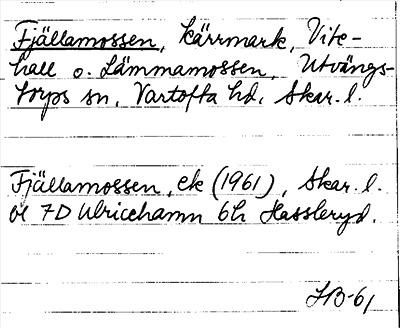 Fjällamossen, kärrmark, Vite-
hall o. Lämmamossen, Utvängs-
torps sn, Vartofta hd, Skar. l.
Fjällamossen, ek (1961), Skar. l.
bl 7D Ulricehamn 6h Hassleryd.